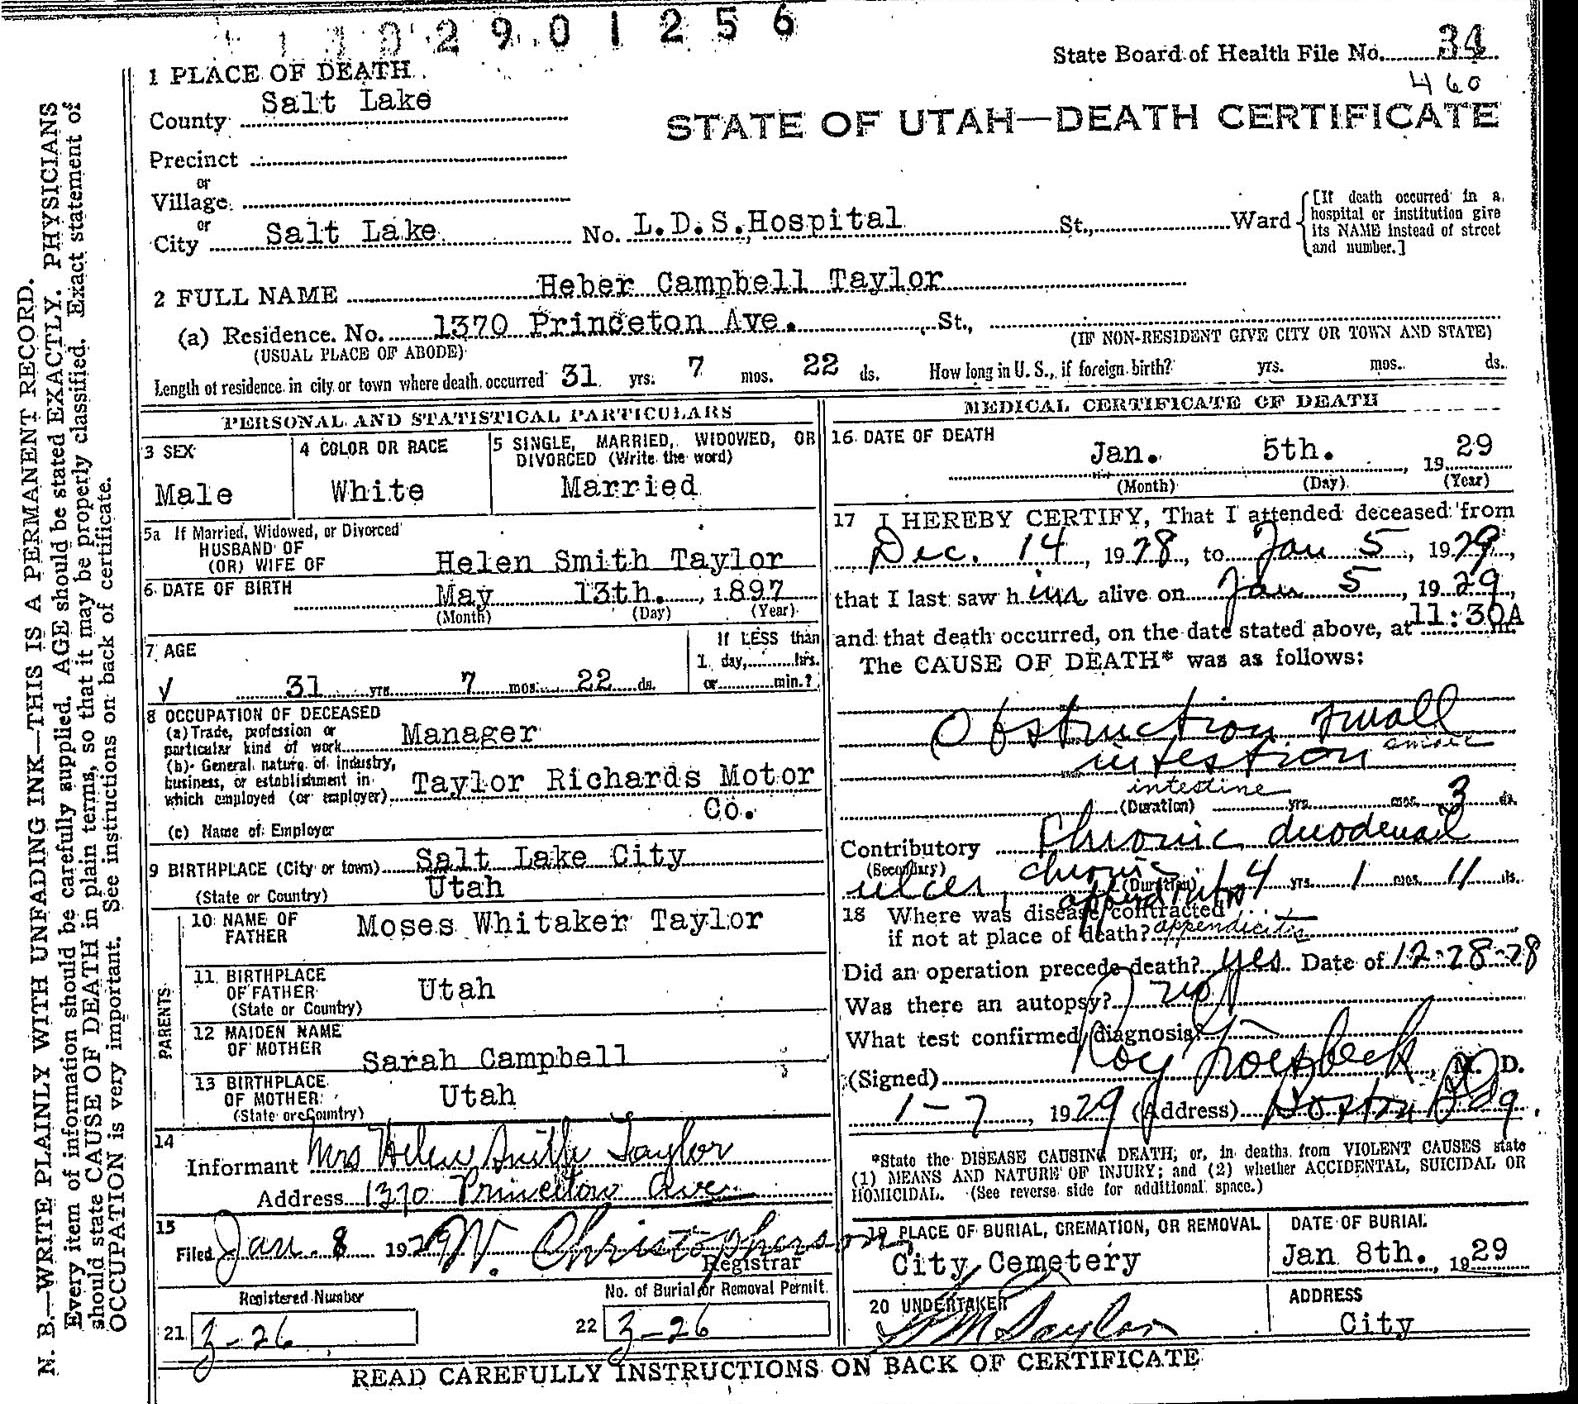 2 9 0 1 2 5 6
State Board of Health File No. 34
460
1 PLACE OF DEATH
County Salt Lake
STATE OF UTAH—DEATH CERTIFICATE
Precinct
or
Village
or
City Salt Lake No. L.D.S. Hospital St., Ward
[If death occurred in a
hospital or institution give
its NAME instead of street
and number.]
2 FULL NAME Heber Campbell Taylor
(a) Residence. No. 1370 Princeton Ave. St.,
(USUAL PLACE OF ABODE) (IF NON-RESIDENT GIVE CITY OR TOWN AND STATE)
Length of residence in city or town where death occurred 31 yrs. 7 mos. 22 ds. How long in U. S., if foreign birth? yrs. mos. ds.
PERSONAL AND STATISTICAL PARTICULARS
3 SEX
Male
4 COLOR OR RACE
White
5 SINGLE, MARRIED, WIDOWED, OR
DIVORCED (Write the word)
Married
5a If Married, Widowed, or Divorced
HUSBAND OF
(OR) WIFE OF Helen Smith Taylor
6 DATE OF BIRTH May 13th. , 1897
(Month) (Day) (Year)
7 AGE
31 yrs. 7 mos. 22 ds.
If LESS than
1 day, hrs.
or min.?
8 OCCUPATION OF DECEASED
(a) Trade, profession or
particular kind of work Manager
(b) General nature of industry,
business, or establishment in
which employed (or employer) Taylor Richards Motor
Co.
(c) Name of Employer
9 BIRTHPLACE (City or town) Salt Lake City
(State or Country) Utah
PARENTS
10 NAME OF
FATHER Moses Whitaker Taylor
11 BIRTHPLACE
OF FATHER Utah
(State or Country)
12 MAIDEN NAME
OF MOTHER Sarah Campbell
13 BIRTHPLACE
OF MOTHER Utah
(State or Country)
14
Informant Mrs Helen Smith Taylor
Address 1370 Princeton Ave
15
Filed Jan. 8 1929 W. Christopherson
Registrar
Registered Number
21 3-26
No. of Burial or Removal Permit.
22 3-26
MEDICAL CERTIFICATE OF DEATH
16 DATE OF DEATH
Jan. 5th. , 1929
(Month) (Day) (Year)
17 I HEREBY CERTIFY, That I attended deceased from
Dec. 14, 1928, to Jan 5, 1929,
that I last saw him alive on Jan 5, 1929,
and that death occurred, on the date stated above, at 11:30A m.
The CAUSE OF DEATH* was as follows:
Obstruction small
intestion
intestine
(Duration) yrs. mos. 3 ds.
Contributory Chronic duodenal
(Secondary)
ulcer, chronic
(Duration) 14 yrs. 1 mos. 11 ds.
18 Where was disease contracted
if not at place of death? appendicitis
Did an operation precede death? yes Date of 12-28-28
Was there an autopsy? no
What test confirmed diagnosis?
(Signed) Roy Groesbeck, M. D.
1-7, 1929 (Address) Boston Bldg.
*State the DISEASE CAUSING DEATH, or, in deaths from VIOLENT CAUSES state
(1) MEANS AND NATURE OF INJURY; and (2) whether ACCIDENTAL, SUICIDAL OR
HOMICIDAL. (See reverse side for additional space.)
19 PLACE OF BURIAL, CREMATION, OR REMOVAL
City Cemetery
DATE OF BURIAL
Jan 8th. , 1929
20 UNDERTAKER
Taylor
ADDRESS
City
READ CAREFULLY INSTRUCTIONS ON BACK OF CERTIFICATE
N. B.—WRITE PLAINLY WITH UNFADING INK—THIS IS A PERMANENT RECORD.
Every item of information should be carefully supplied. AGE should be stated EXACTLY. PHYSICIANS
should state CAUSE OF DEATH in plain terms, so that it may be properly classified. Exact statement of
OCCUPATION is very important. See instructions on back of certificate.